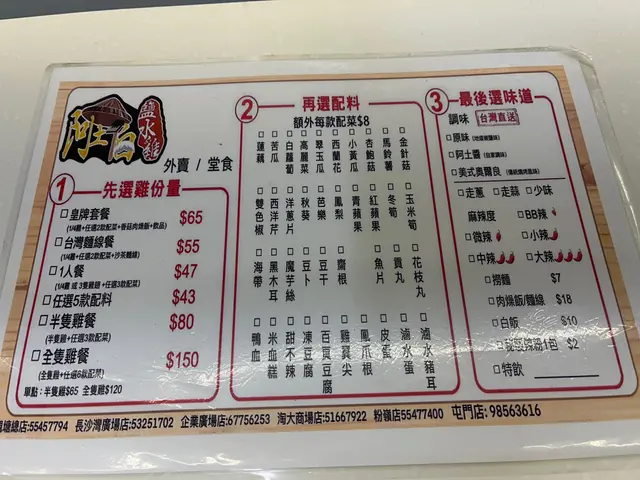 阿土伯
鹽水雞
外賣 / 堂食
1 先選雞份量
□ 皇牌套餐 $65
(1/4雞+任選2款配菜+香菇肉燥飯+飲品)
□ 台灣麵線餐 $55
(1/4雞+任選2款配菜+沙茶麵線)
□ 1人餐 $47
(1/4雞 或 3隻雞翅 +任選3款配菜)
□ 任選5款配料 $43
□ 半隻雞餐 $80
(半隻雞+任選3款配菜)
□ 全隻雞餐 $150
(全隻雞+任選6款配菜)
單點 : 半隻雞$65 全隻雞$120
2 再選配料
額外每款配菜$8
□ 蓮藕 □ 苦瓜 □ 白蘿蔔 □ 高麗菜 □ 翠玉瓜 □ 西蘭花 □ 小黃瓜 □ 杏鮑菇 □ 馬鈴薯 □ 金針菇
□ 雙色椒 □ 西洋芹 □ 洋蔥片 □ 秋葵 □ 芭樂 □ 鳳梨 □ 青蘋果 □ 紅蘋果 □ 冬筍 □ 玉米筍
□ 海帶 □ 黑木耳 □ 魔芋絲 □ 豆卜 □ 豆干 □ 齋根 □ 魚片 □ 貢丸 □ 花枝丸
□ 鴨血 □ 米血糕 □ 甜不辣 □ 凍豆腐 □ 百頁豆腐 □ 雞尖 □ 鳳爪根 □ 皮蛋 □ 滷水蛋 □ 滷水豬耳
3 最後選味道
調味 台灣直送
□ 原味
□ 阿土醬
□ 美式奧爾良
□ 走蔥 □ 走蒜 □ 少味
麻辣度 □ BB辣
□ 微辣 □ 小辣
□ 中辣 □ 大辣
□ 撈麵 $7
□ 肉燥飯/麵線 $18
□ 白飯 $10
辣粉1包 $2
□ 特飲
塘總店:55457794 長沙灣廣場店:53251702 企業廣場店:67756253 淘大商場店:51667922 粉嶺店:55477400 屯門店: 98563616